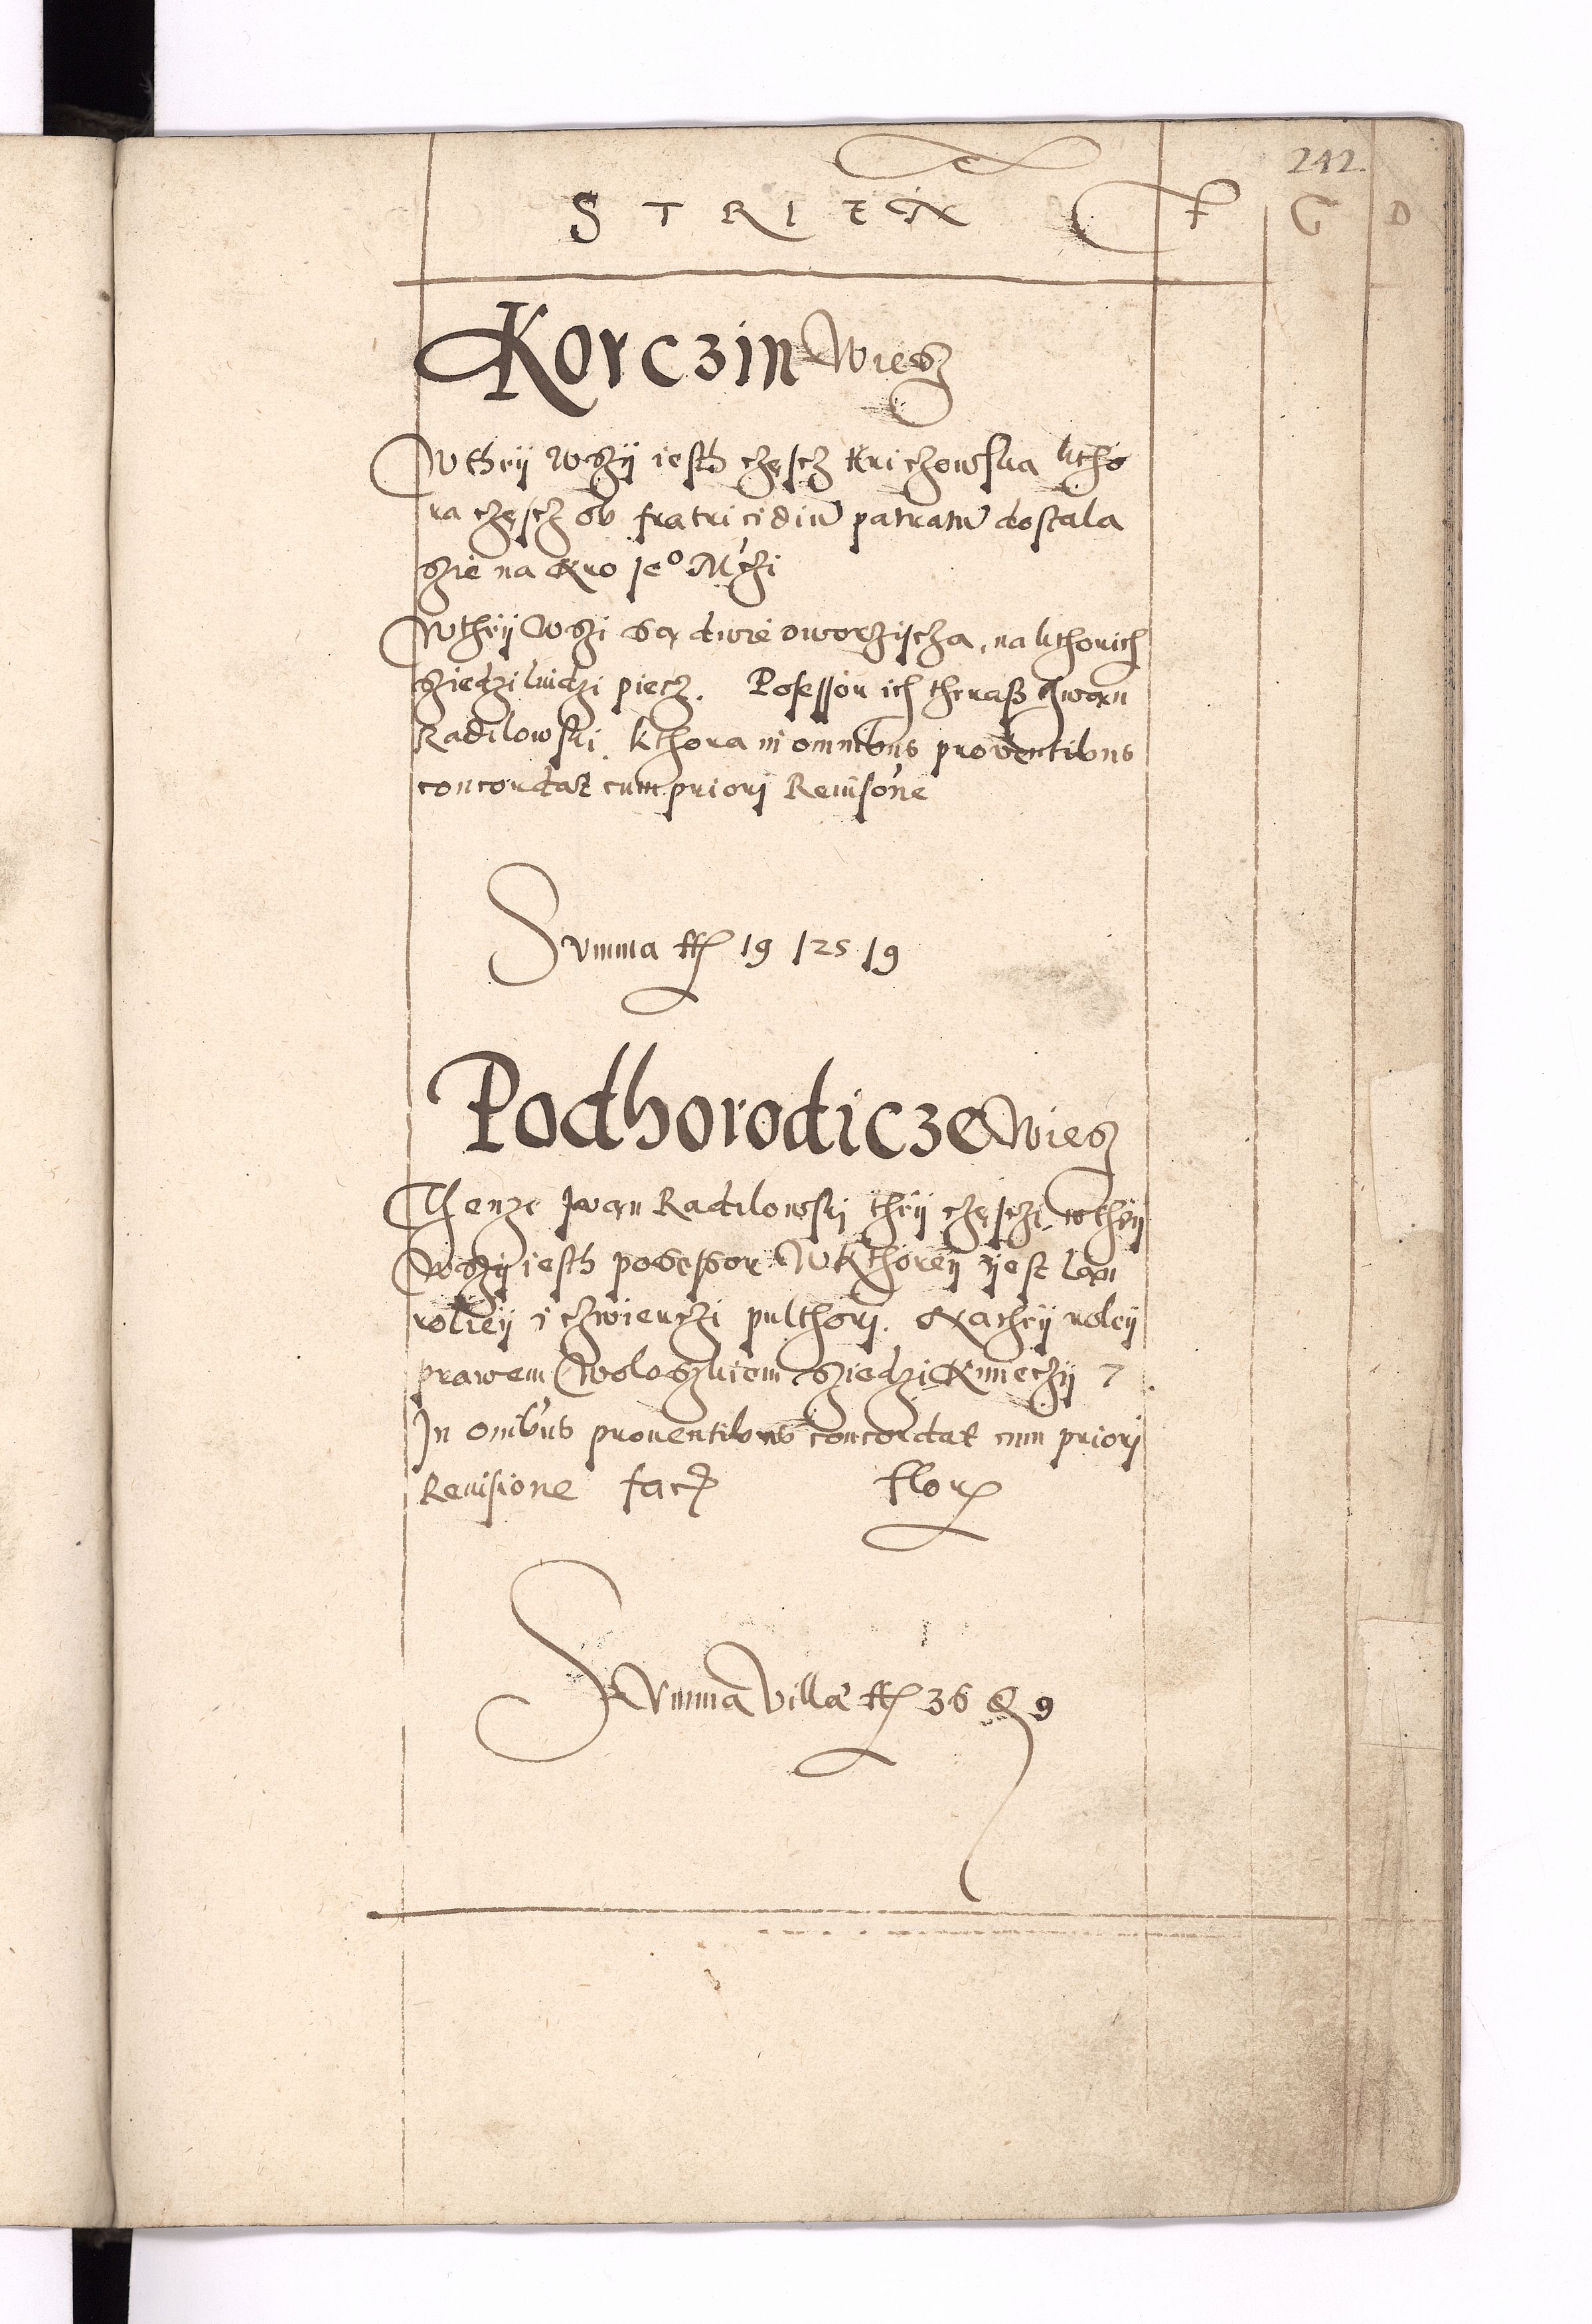 242.
S T R I E N F G D
Korczin Wiesz
W thrij Wszij iesth częscz Krichowska ktho
ra częscz ob fratricidiu patratu dostala
szie na Kro Je⁰ M'czi
W thrij Wszi są dwie dworzyscza, na kthorich
sziedzi ludzi piecz. Posessor ich theraß Iwan
Radilowski. kthora in omnibus proventibus
concordat cum priorj Reviso'ne
Summa ff 19 / 25 / 9
Podhorodicze Wiesz
Thenze Iwan Radilowskj thrij częsczi w thrij
Wszij iesth possessor W kthoreij ijest lan
roliey i czwierczi pulthorj. Na theij roleij
prawem Woloszkiem sziedzi Kmieczij 7
In om'ibus proventibus concordat cum priorj
Revisione fact flor
Summa Villa ff 36 g 9